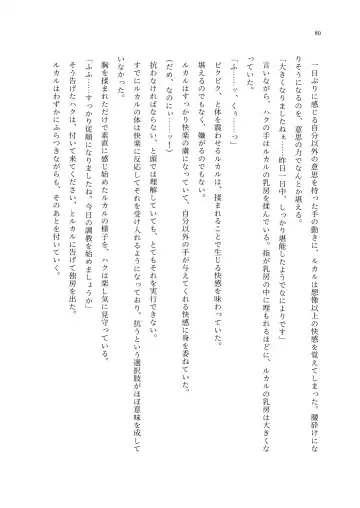 80
一日ぶりに感じる自分以外の意思を持った手の動きに、ルカルは想像以上の快感を覚えてしまった。腰砕けにな
りそうになるのを、意思の力でなんとか堪える。
「大きくなりましたねぇ……昨日一日中、しっかり堪能したようでなによりです」
言いながら、ハクの手はルカルの乳房を揉んでいる。指が乳房の中に埋もれるほどに、ルカルの乳房は大きくな
っていた。
「ふ……ッ、くぅ……っ」
ビクビク、と体を震わせるルカルは、揉まれることで生じる快感を味わっていた。
堪えるのでもなく、嫌がるのでもない。
ルカルはすっかり快楽の虜になっていて、自分以外の手が与えてくれる快感に身を委ねていた。
(だめ、なのにぃ……ッ！)
抗わなければならない、と頭では理解していても、とてもそれを実行できない。
すでにルカルの体は快楽に反応してそれを受け入れるようになっており、抗うという選択肢がほぼ意味を成して
いなかった。
胸を揉まれただけで素直に感じ始めたルカルの様子を、ハクは楽し気に見守っている。
「ふふ……すっかり従順になりましたね。今日の調教を始めましょうか」
そう告げたハクは、付いて来てください、とルカルに告げて独房を出た。
ルカルはわずかにふらつきながらも、そのあとを付いていく。